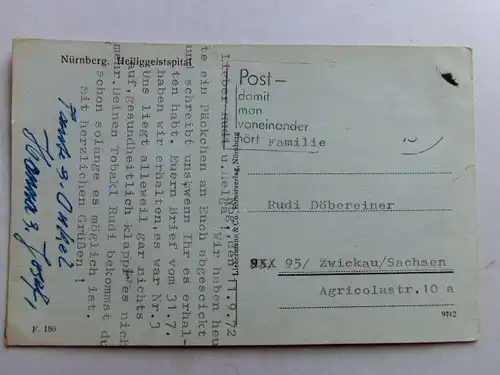 Nürnberg. Heiliggeistspital
Nbg., den 11.9.72
Lieber Rudi u.Helga! Wir haben heu
te ein Päckchen an Euch abgesc​ickt
und schreibt uns,wenn Ihr es erhal-
ten habt. Euern Brief vom 31.7.
haben wir erhalten,es war Nr.3
Uns liegt alleweil gar nichts
auf,gesundheitlich klappt es nich
mehr.Deinen Tobakl Rudi bekommst du
schon solange es möglich ist.
Mit herzlichen Grüßen !
Hanna & Josef,
Post-
damit
man
voneinander
hört
Familie
Rudi Döbereiner
95/ Zwickau/Sachsen
Agricolastr.10 a
F. 150
9742